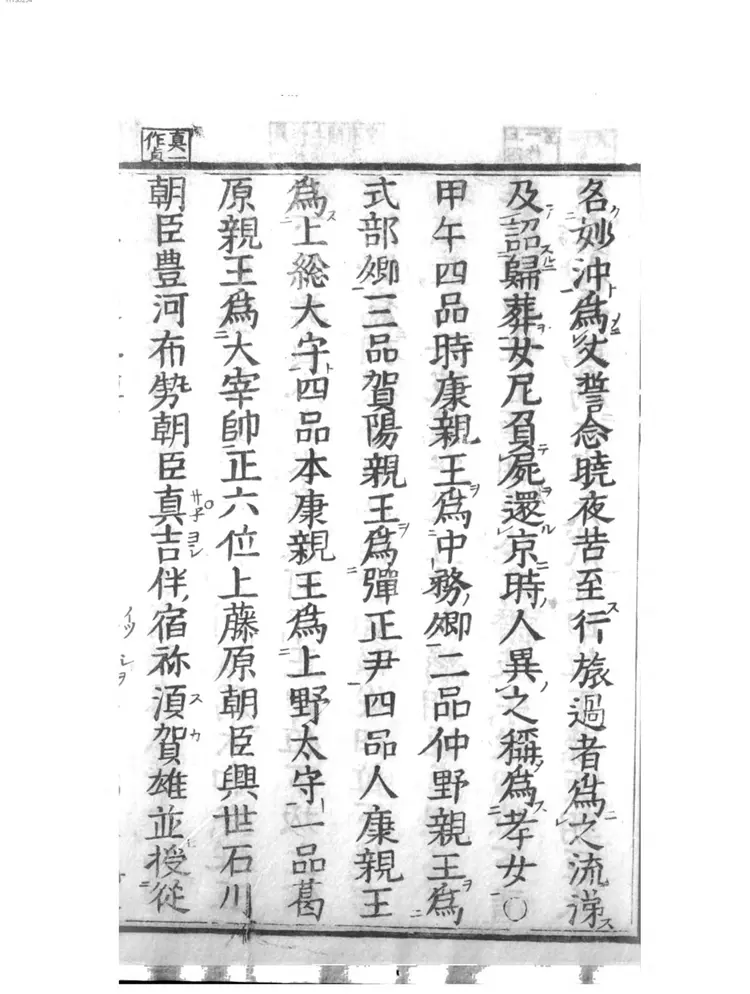 名妙沖為父誓念暁夜苦至行旅過者為之流涕
及詔歸葬女尼負屍還京時人異之稱為孝女○
甲午四品時康親王為中務卿二品仲野親王為
式部卿三品賀陽親王為彈正尹四品人康親王
為上総大守四品本康親王為上野太守一品葛
原親王為大宰帥正六位上藤原朝臣興世石川
朝臣豊河布勢朝臣真吉伴宿祢須賀雄並授従
真一作貞